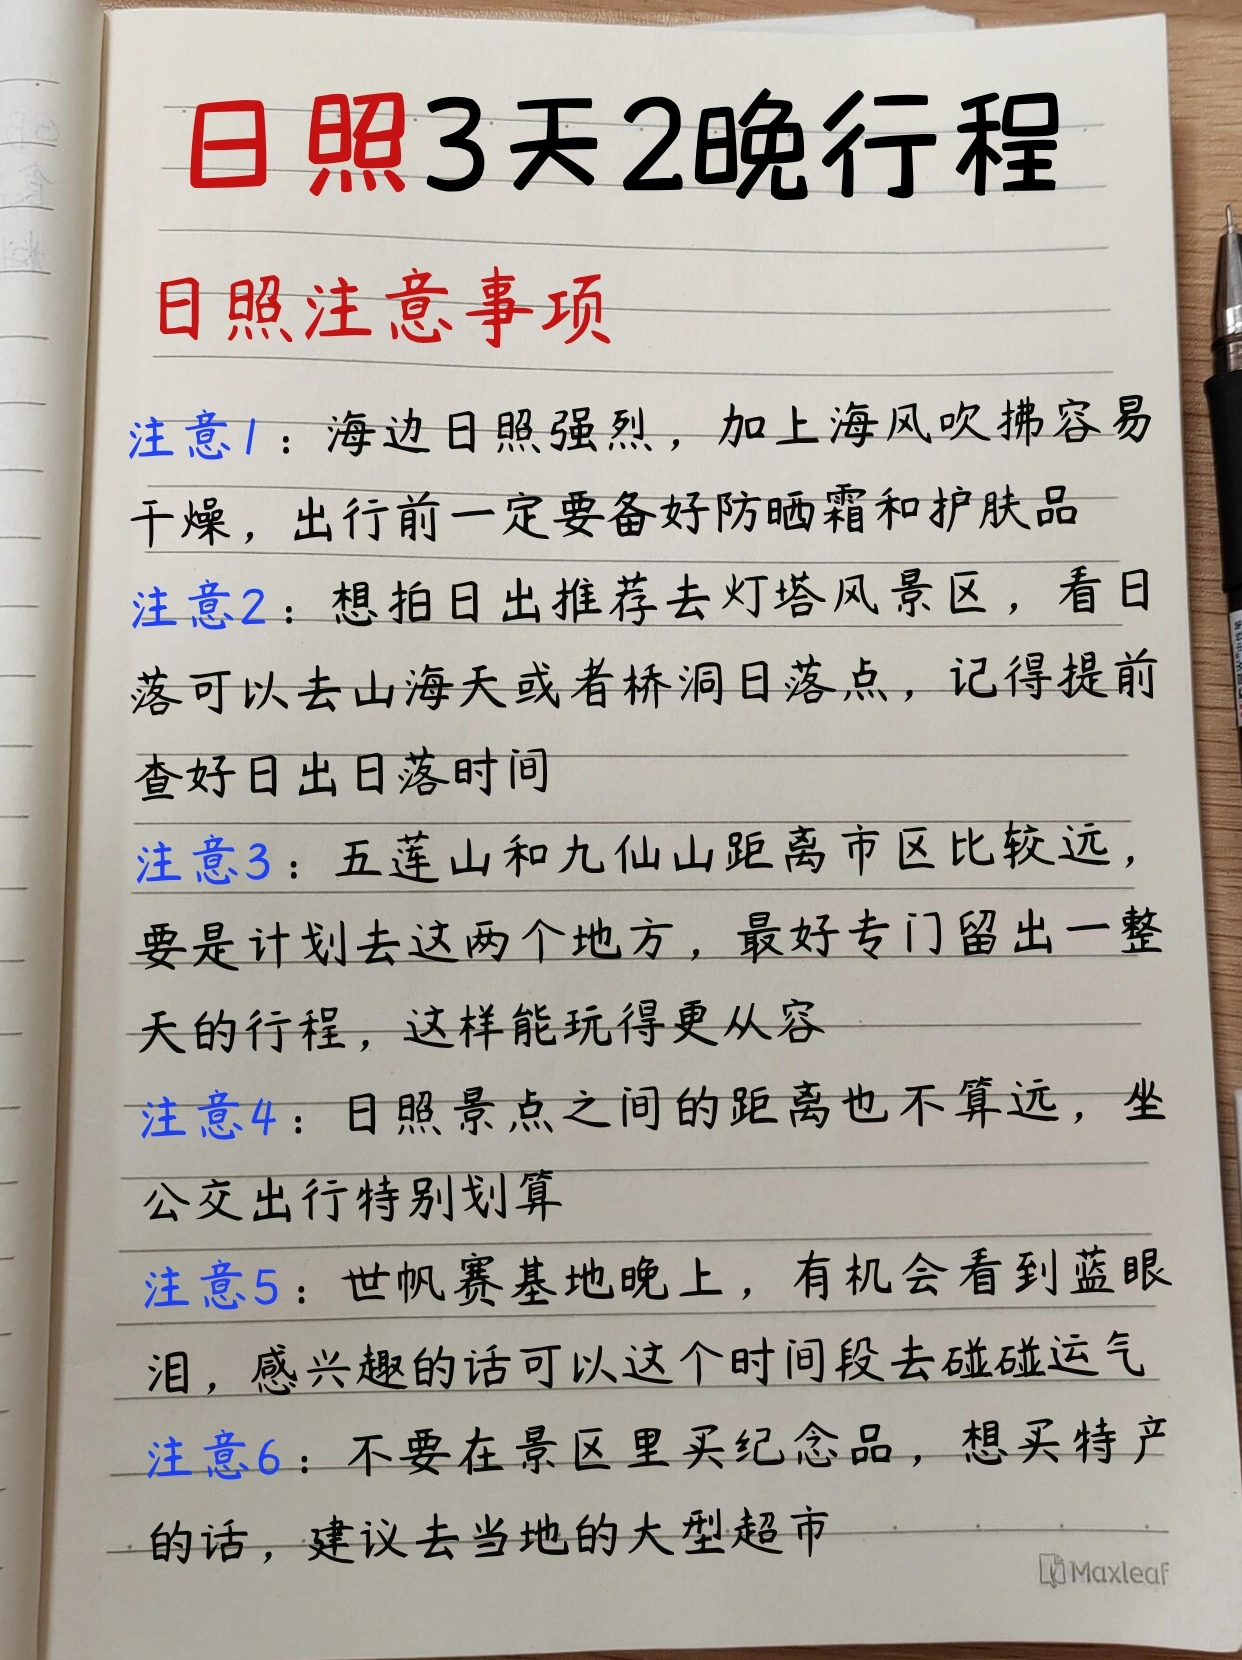 日照3天2晚行程
日照注意事项
注意1：海边日照强烈，加上海风吹拂容易
干燥，出行前一定要备好防晒霜和护肤品
注意2：想拍日出推荐去灯塔风景区，看日
落可以去山海天或者桥洞日落点，记得提前
查好日出日落时间
注意3：五莲山和九仙山距离市区比较远，
要是计划去这两个地方，最好专门留出一整
天的行程，这样能玩得更从容
注意4：日照景点之间的距离也不算远，坐
公交出行特别划算
注意5：世帆赛基地晚上，有机会看到蓝眼
泪，感兴趣的话可以这个时间段去碰碰运气
注意6：不要在景区里买纪念品，想买特产
的话，建议去当地的大型超市
Maxleaf